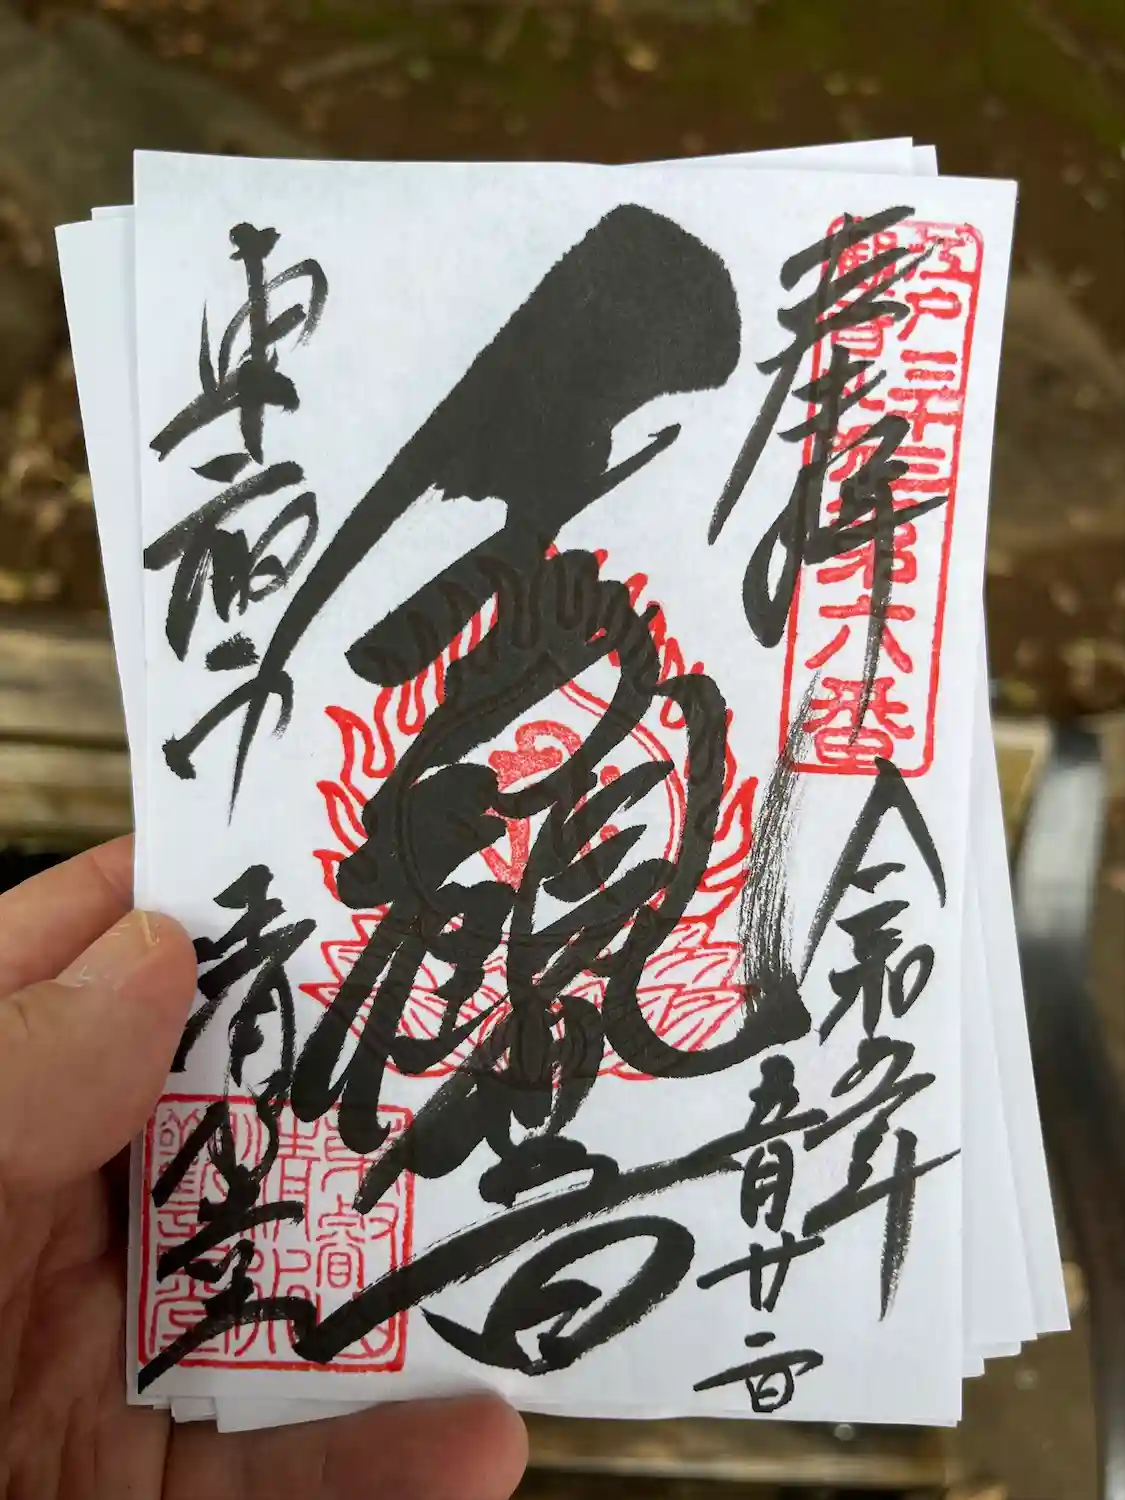 奉拝
江戸三十三
観音札所第六番
令和五年
五月廿二日
千手観音
東叡山
清水堂